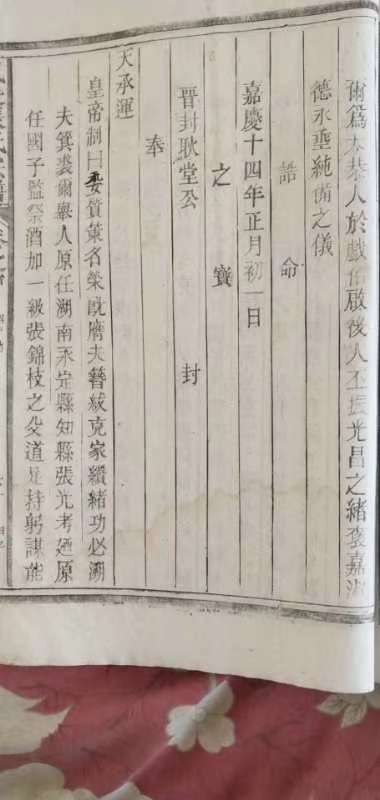 爾爲太恭人於戲佑啟後人丕振光昌之緒褒嘉淑
德永垂純備之儀
誥命
嘉慶十四年正月初一日
之寳
晉封耿堂公 封
奉
天承運
皇帝制曰委質策名榮既膺夫簪紱克家纘緒功必溯
夫箕裘爾舉人原任湖南永定縣知縣張光考廼原
任國子監祭酒加一級張錦枝之父道足持躬謀能